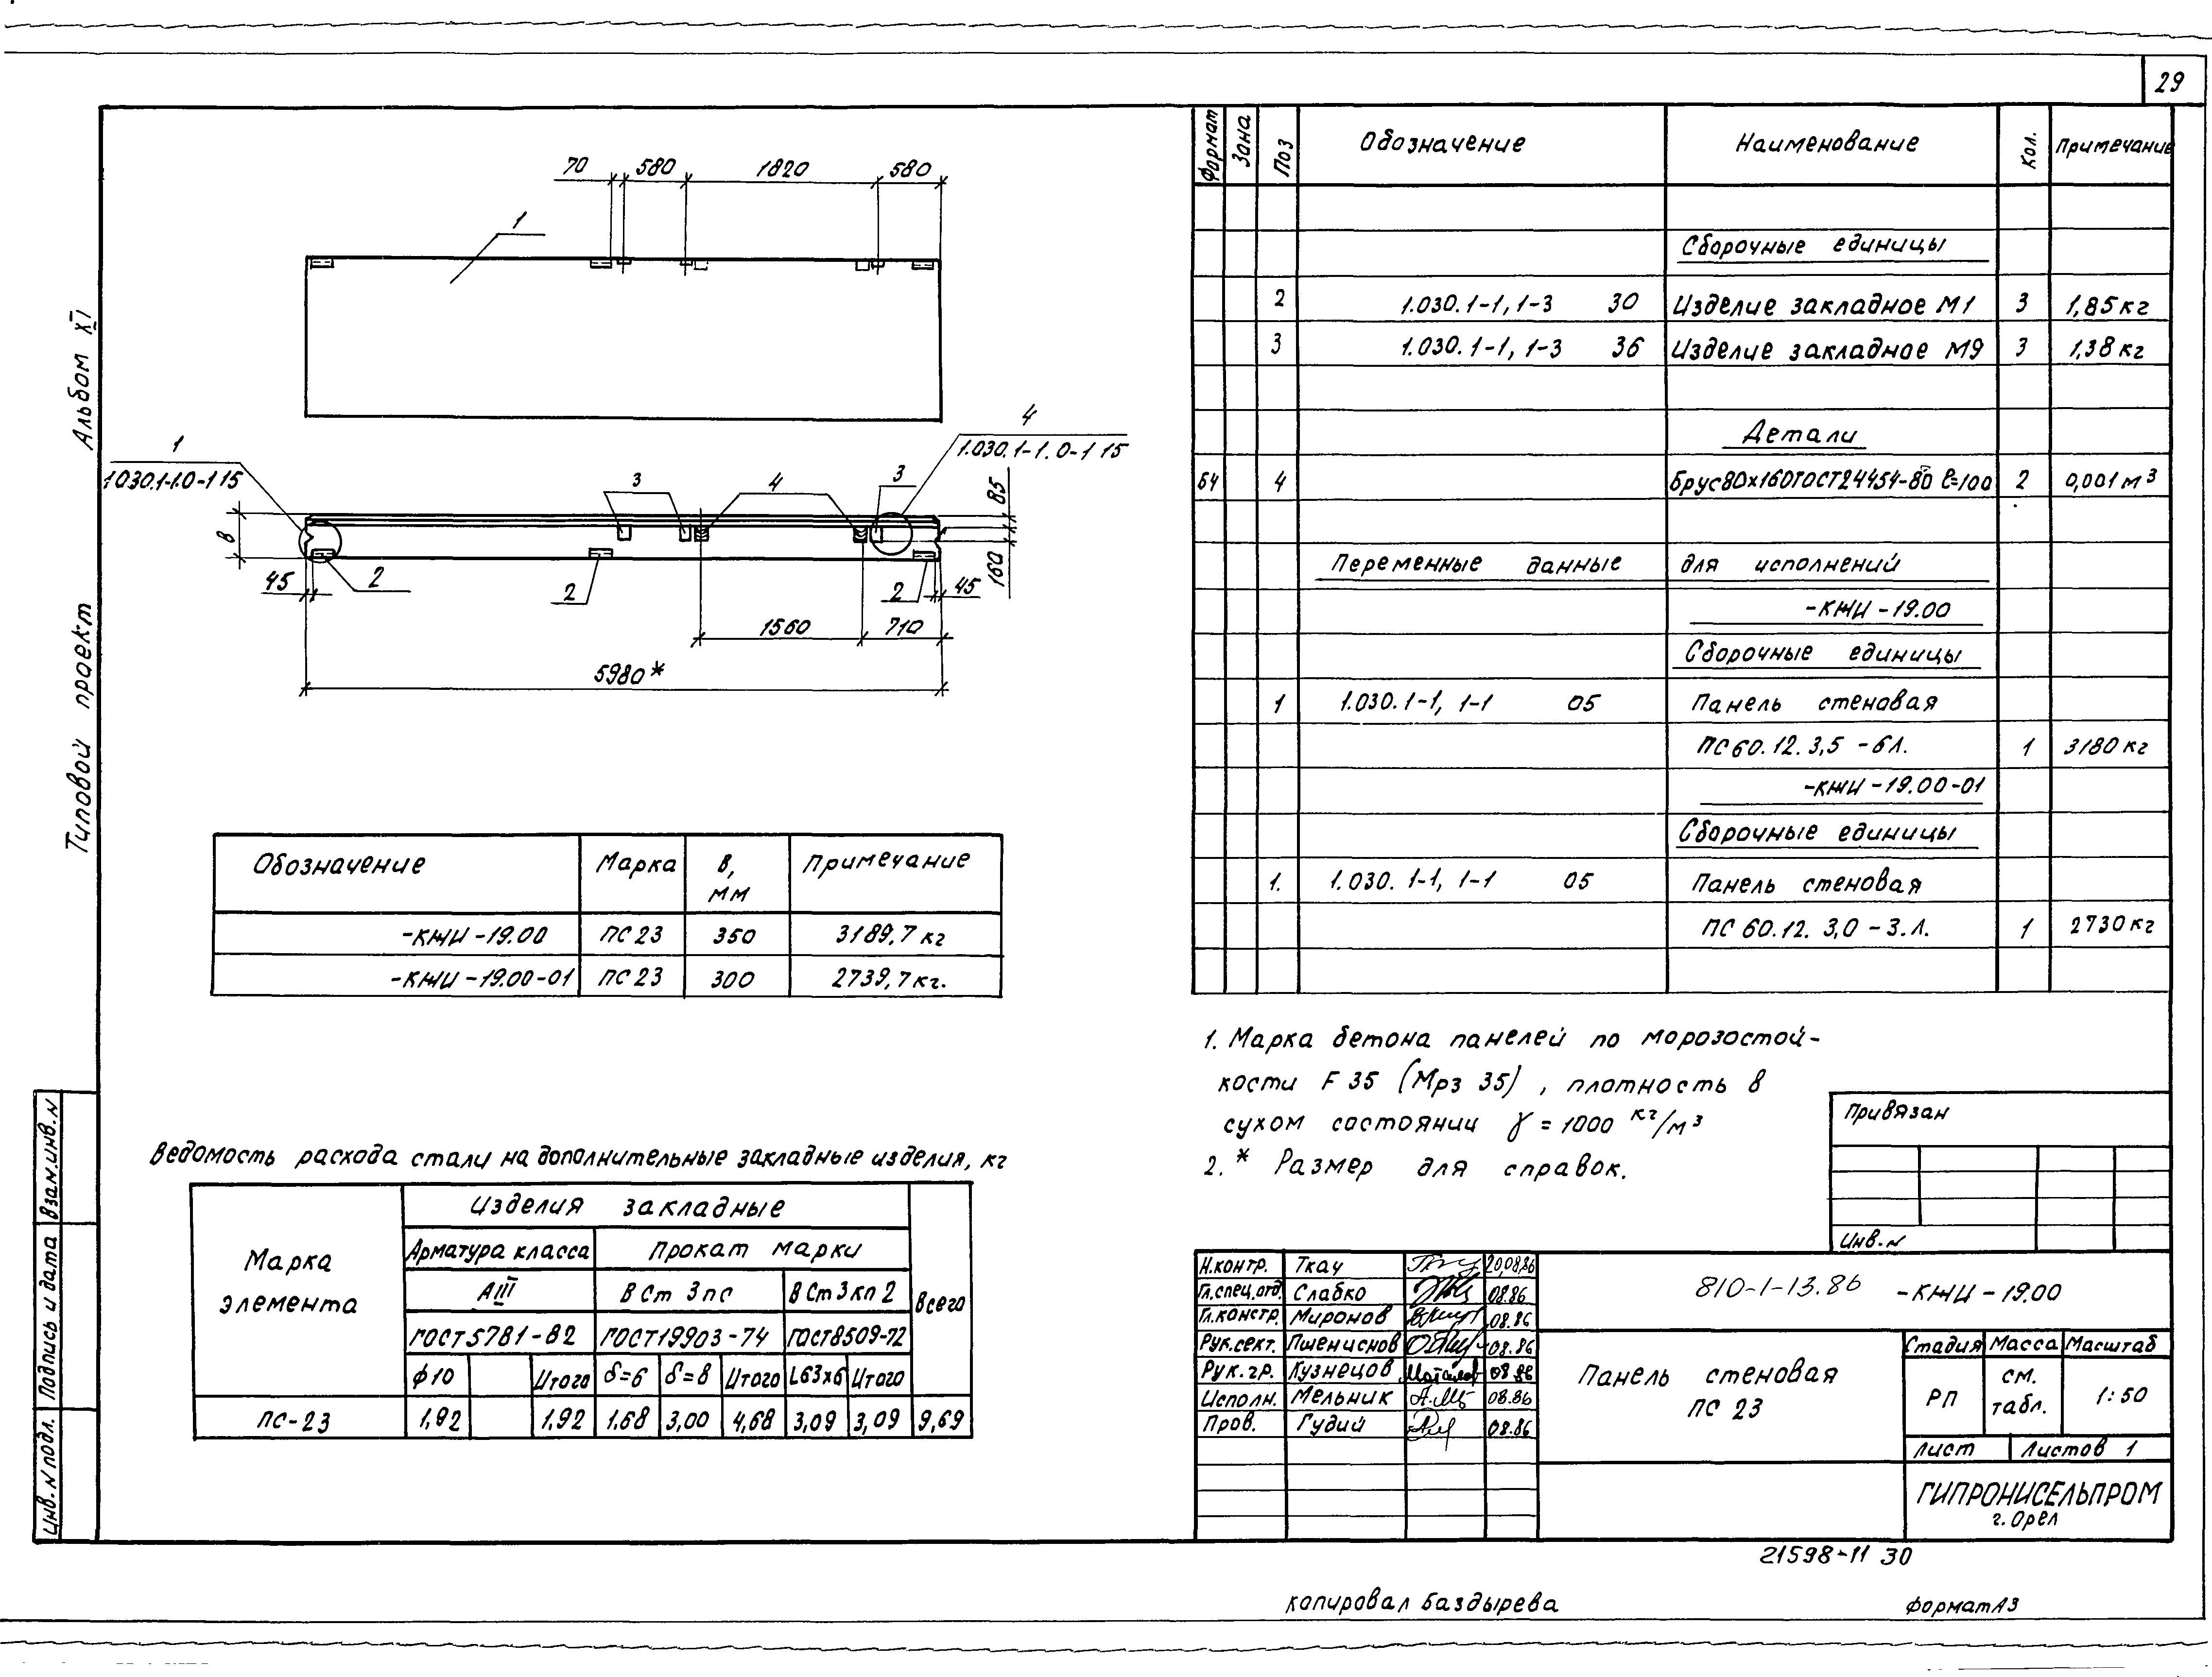 29
Альбом XI
Типовой проект
70 580 1820 580
1
1
1.030.1-1.0-1 15
4
1.030.1-1.0-1 15
3 4 3
85
160
в
45 2 2 2 45
1560 710
5980*
Обозначение Марка в, мм Примечание
-КЖИ-19.00 ПС 23 350 3189,7 кг
-КЖИ-19.00-01 ПС 23 300 2739,7 кг.
Ведомость расхода стали на дополнительные закладные изделия, кг
Марка элемента Изделия закладные Всего
Арматура класса Прокат марки
АIII ВСт 3пс ВСт3кп2
ГОСТ5781-82 ГОСТ19903-74 ГОСТ8509-72
ф10 Итого δ=6 δ=8 Итого L63x6 Итого
ПС-23 1,92 1,92 1,68 3,00 4,68 3,09 3,09 9,69
Формат Зона Поз Обозначение Наименование Кол. Примечание
Сборочные единицы
2 1.030.1-1, 1-3 30 Изделие закладное М1 3 1,85 кг
3 1.030.1-1, 1-3 36 Изделие закладное М9 3 1,38 кг
Детали
Б4 4 Брус80х160ГОСТ24454-80 ℓ=100 2 0,001 м³
Переменные данные для исполнений
-КЖИ-19.00
Сборочные единицы
1 1.030.1-1, 1-1 05 Панель стеновая
ПС60.12.3,5-6Л. 1 3180 кг
-КЖИ-19.00-01
Сборочные единицы
1. 1.030.1-1, 1-1 05 Панель стеновая
ПС 60.12.3,0-3.Л. 1 2730 кг
1. Марка бетона панелей по морозостой-
кости F 35 (Мрз 35), плотность в
сухом состоянии γ = 1000 кг/м³
2. * Размер для справок.
Привязан
Инв.N
Н.контр. Ткач 20.08.86
Гл.спец.отд. Слабко 08.86
Гл.констр. Миронов 08.86
Рук.сект. Пшениснов 08.86
Рук.гр. Кузнецов 08.86
Исполн. Мельник 08.86
Пров. Гудий 08.86
810-1-13.86 -КЖИ-19.00
Панель стеновая
ПС 23
Стадия Масса Масштаб
РП см. табл. 1:50
Лист Листов 1
ГИПРОНИСЕЛЬПРОМ
г. Орел
Инв. N подл. Подпись и дата Взам.инв.N
21598-11 30
Копировал Баздырева
Формат А3